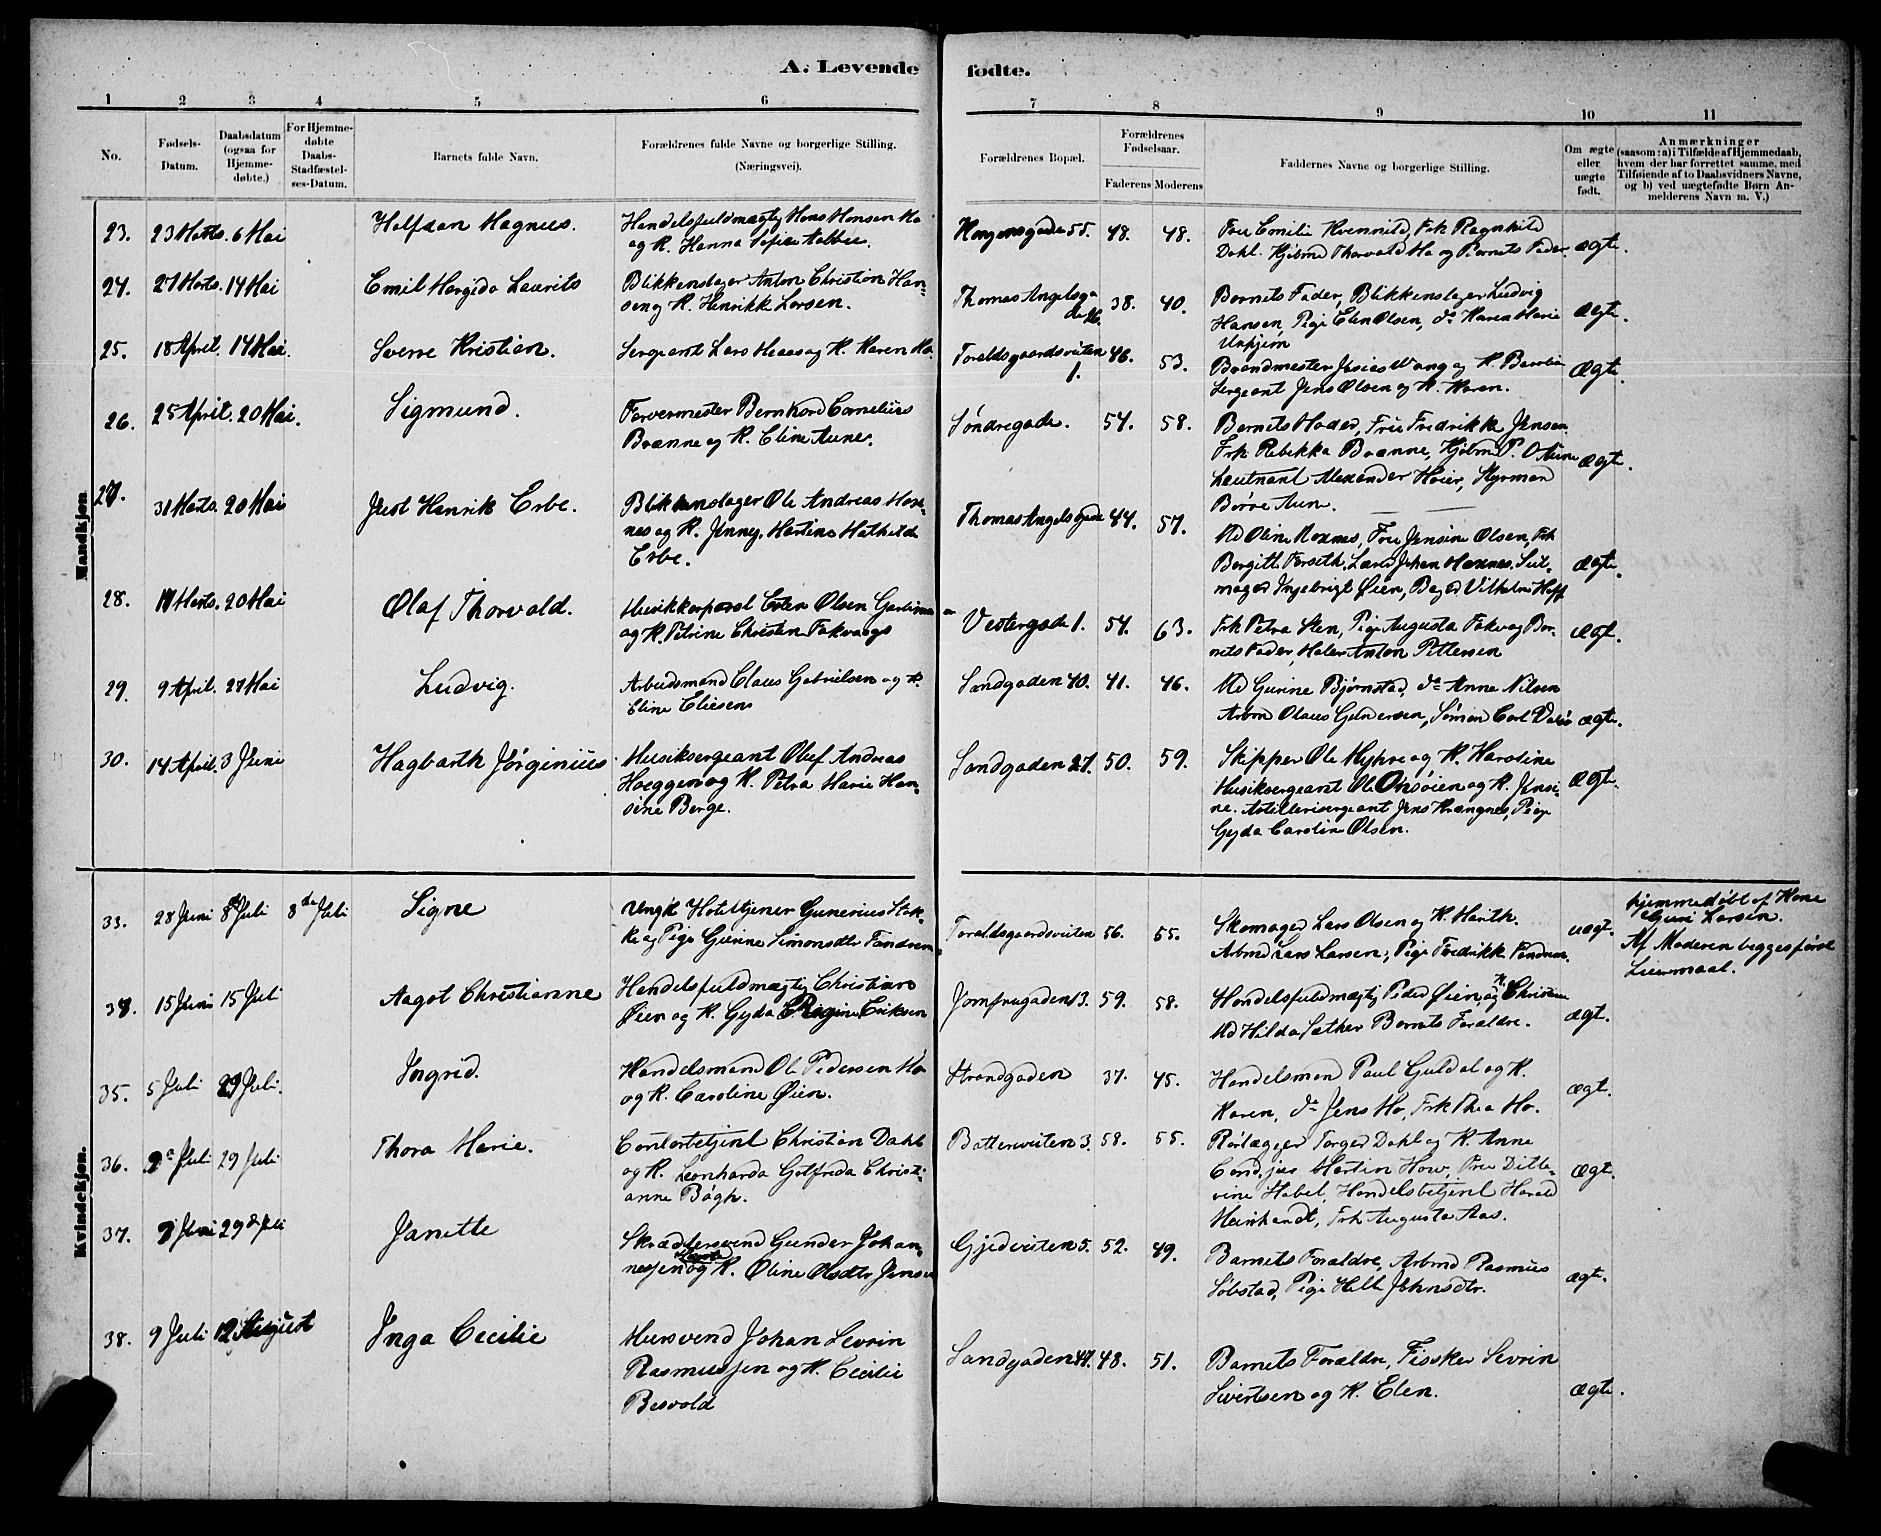 A. Levende fødte.
1 2 3 4 5 6 7 8 9 10 11
No.
Fødsels-
Datum.
Daabsdatum
(ogsaa for
Hjemme-
døbte.)
For Hjemme-
døbte
Daabs-
Stadfæstel-
ses-Datum.
Barnets fulde Navn.
Forældrenes fulde Navne og borgerlige Stilling.
(Næringsvei).
Forældrenes Bopæl.
Forældrenes
Fødselsaar.
Faderens Moderens
Faddernes Navne og borgerlige Stilling.
Om ægte
eller
uægte
født.
Anmærkninger
(saasom: a) i Tilfælde af Hjemmedaab,
hvem der har forrettet samme, med
Tilføiende af to Daabsvidners Navne,
og b) ved uægtefødte Børn An-
melderens Navn m. V.)
Mandkjøn
23. 23 Marts. 6 Mai
Halfdan Magnus.
Handelsfuldmægtig Hans Hansen Mo
og K. Hanna Sofie Aalbu.
55. 48. 48.
Fru Emilie Kvennild, Frk Ragnhild
Dahl. Kjøbmd Thorvald Mo og Barnets Fader.
ægte.
24. 27 Marts. 14 Mai
Emil Laurits
Blikkenslager Anton Christian Han-
sen og K. Henrikke Larsen.
Thomas Angelsga
de 16.
38. 40.
Barnets Fader, Blikkenslager Ludvig
Hansen, Pige Elen Olsen, do Karen Marie
ægte.
25. 18 April. 14 Mai.
Sverre Kristian.
Sergeant Lars Moa og K. Karen Mo.
Toraldsgaardsveiten
1.
46. 53.
Brandmester Josias Wang og K.
Sergeant Jens Olsen og K. Maren.
ægte.
26. 25 April. 20 Mai.
Sigmund.
Farvermester Bernhard Cornelius
Brænne og K. Eline Aune.
Søndregade. 54. 58.
Barnets Moder, Fru Fredrikke Jensen
Frk Rebekka Brænne, Kjøbmd P. O Aune
Leutnant Alexander Høier, Styrman
Børre Aun.
ægte.
27. 31 Marts. 20 Mai
Just Henrik Erbe.
Blikkenslager Ole Andreas Mox-
nes og K. Jenny Martine Mathilde
Erbe.
Thomas Angelsgade 44. 57.
Md Oline Moxnes, Fru Jensine Olsen, Frk
Bergitte Forseth, Johan Moxnes, Sul-
mager Ingebrigt Øien, Bager Vilhelm Hoff
ægte.
28. 11 Marts. 20 Mai
Olaf Thorvald.
Musikkorporal Esten Olsen
og K. Petrine Christen Fakvaag
Vestergade 1. 54. 63.
Frk Petra Sten, Pige Augusta Fakvag Bar-
nets Fader, Maler Anton Pettersen
ægt.
29. 9 April. 27 Mai
Ludvig.
Arbeidsmand Claus Gabrielsen og K.
Eline Eliesen
Sandgaden 40. 41. 46.
Md Gurine Bjørnstad, do Anna Nilsen
Arbmd Olaus Gundersen, Sømand Carl
ægte.
30. 14 April. 3 Juni
Hagbarth Jørginius
Musiksergeant Olaf Andreas
Hoeggen og K. Petra Marie Han-
sine Berge.
Sandgaden 27. 50. 59.
Skipper Ole Myhre og K. Karoline
Musiksergeant Ole Onsøien og K. Jensi-
ne. Artillerisergeant Jens Krangnes, Pige
Gyda Caroline Olsen.
ægte.
Kvindekjøn.
33. 28 Juni 8de Juli 8de Juli
Signe
Ungk Hoteltjener Gunerius Stok-
ke og Pige Gurine Simonsdtr Tandrem
Toraldsgaardsveiten 56. 55.
Skomager Lars Olsen og K. Marith.
Arbmd Lars Larsen, Pige Fredrikke
uægt.
hjemmedøbt af Kone
Guri Larsen.
Af Moderen begges første
Leiermaal.
34. 15 Juni 15 Juli
Aagot Christianne
Handelsfuldmægtig Christian
Øien og K. Gyda Regine Eriksen
Jomfrugaden 13. 59. 58.
Handelsfuldmægtig Peder Øien og K. Christine
Md Hilda Sæther Barnets Forældre.
ægt.
35. 5 Juli 29 Juli.
Ingrid.
Handelsmand Ole Pedersen Mo
og K. Caroline Øien.
Strandgaden 37. 45.
Handelsmand Paul Guldal og K.
Karen, do Jens Mo, Frk Thea Mo.
ægt.
36. 2de Juli 29 Juli
Thora Marie.
Contorbetjent Christian Dahl
og K. Leonharda Gotfrida Christi-
anne Bøgh.
Batteriveiten 3. 58. 55.
Rørlægger Torger Dahl og K. Anne
Cand. jur Martin How, Fru Ditle-
vine Habel, Handelsbetjent Harald
Meinhardt, Frk Augusta Aas.
ægt.
37. 7 Juni 29de Juli
Janette
Skræddersvend Gunder Johan-
nesjen og K. Oline Olsdtr Jensen
Gjedveiten 5. 52. 49.
Barnets Forældre, Arbmd Rasmus
Løbstad, Pige Hella Johnsdtr.
ægt.
38. 9 Juli 12 August
Inga Cecilie
Mursvend Johan Sevrin
Rasmussen og K. Cecilie
Besvold
Sandgaden 47. 48. 51.
Barnets Forældre, Fissker Sevrin
Sivertsen og K. Elen.
ægte.